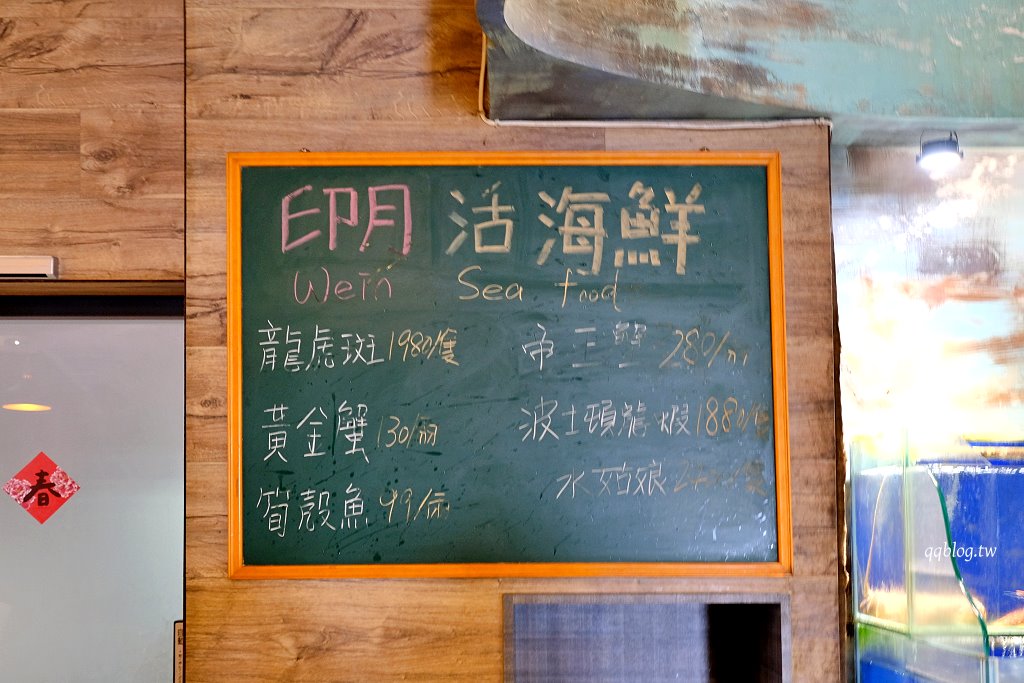 印月 活海鮮
Wein Sea food
龍虎斑 1980/隻
帝王蟹 280/兩
黃金蟹 130/兩
波士頓龍蝦 1880/隻
筍殼魚 99/兩
水姑娘
春
qqblog.tw